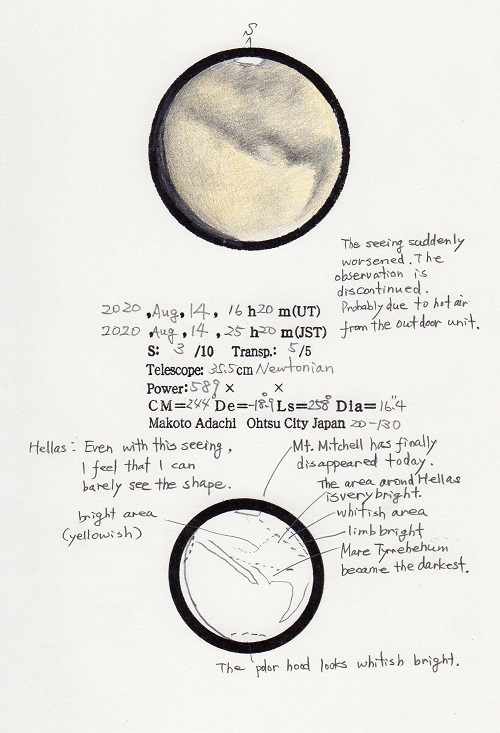 S
The seeing suddenly
worsened. The
observation is
discontinued.
Probably due to hot air
from the outdoor unit.
2020 ,Aug, 14, 16 h20 m(UT)
2020 ,Aug, 14, 25 h20 m(JST)
S: 3 /10 Transp.: 5/5
Telescope: 35.5cm Newtonian
Power:589 × ×
CM=244° De=-18.9° Ls=258° Dia=16.″4
Makoto Adachi Ohtsu City Japan 20-130
Hellas: Even with this seeing,
I feel that I can
barely see the shape.
Mt. Mitchell has finally
disappeared today.
The area arond Hellas
is very bright.
whitish area
limb bright
Mare Tyrrehehum
became the darkest.
bright area
(yellowish)
The polor hood looks whitish bright.